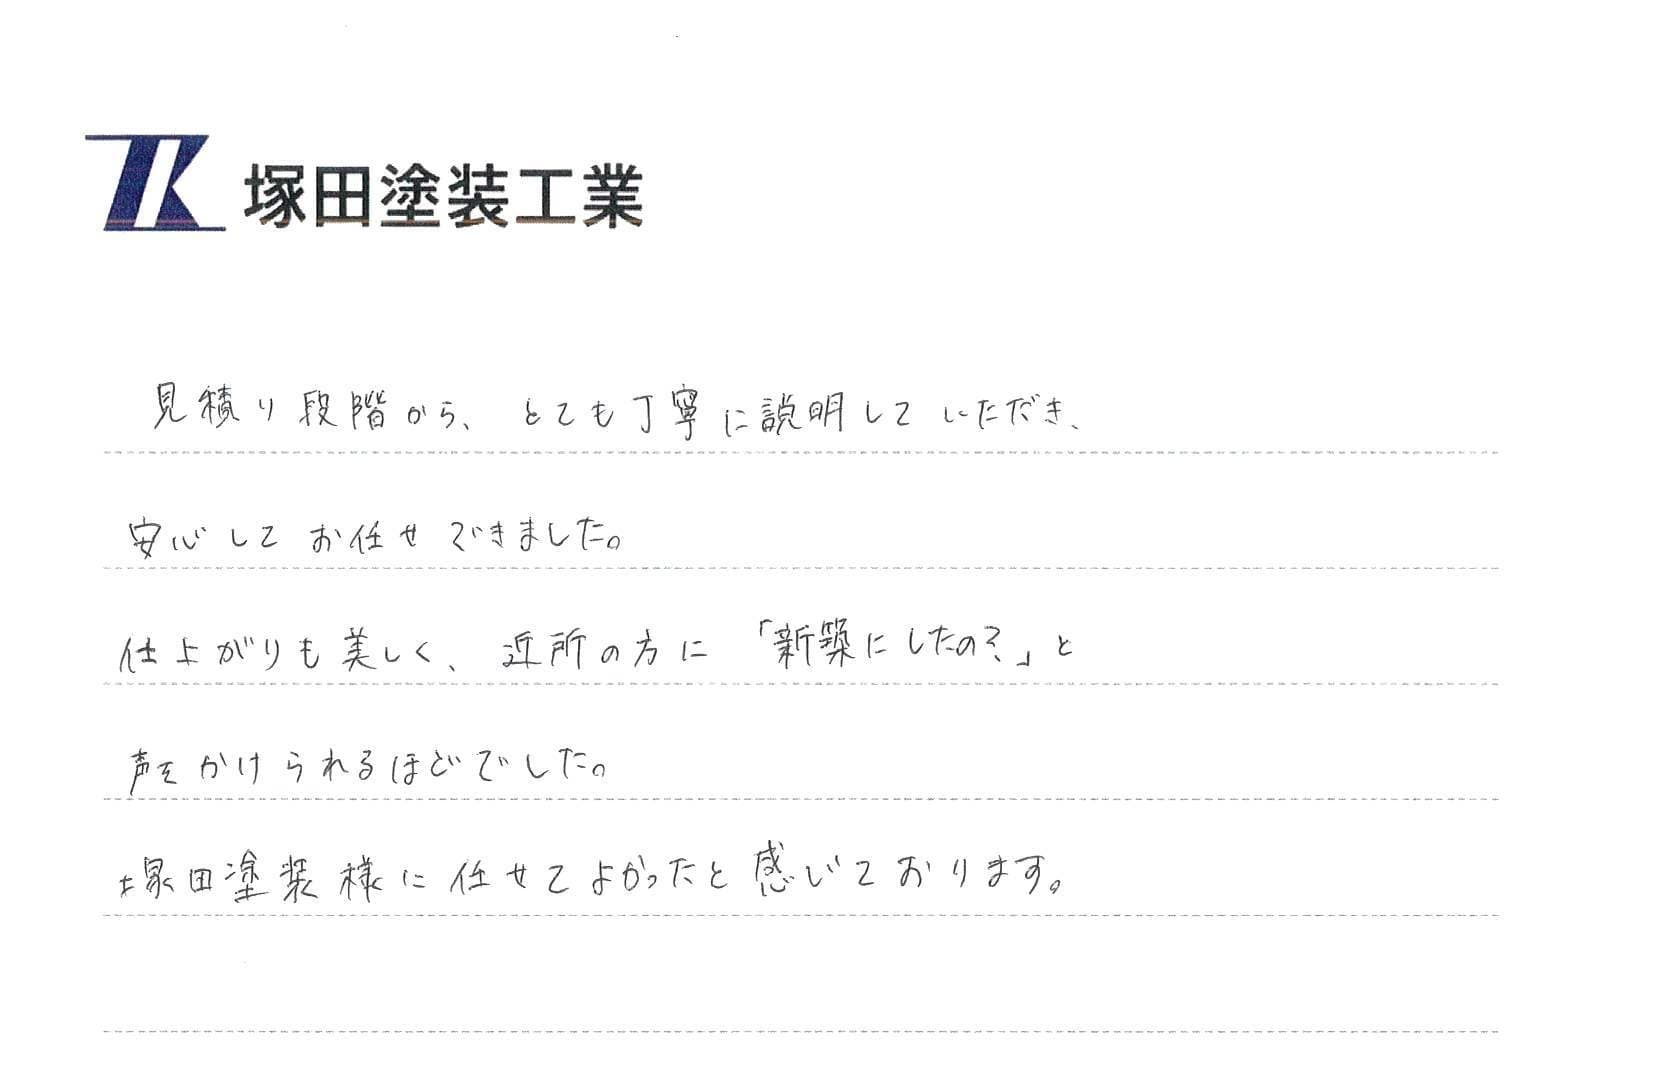 TK 塚田塗装工業
見積り段階から、とても丁寧に説明していただき、
安心してお任せできました。
仕上がりも美しく、近所の方に「新築にしたの?」と
声をかけられるほどでした。
塚田塗装様に任せてよかったと感じております。